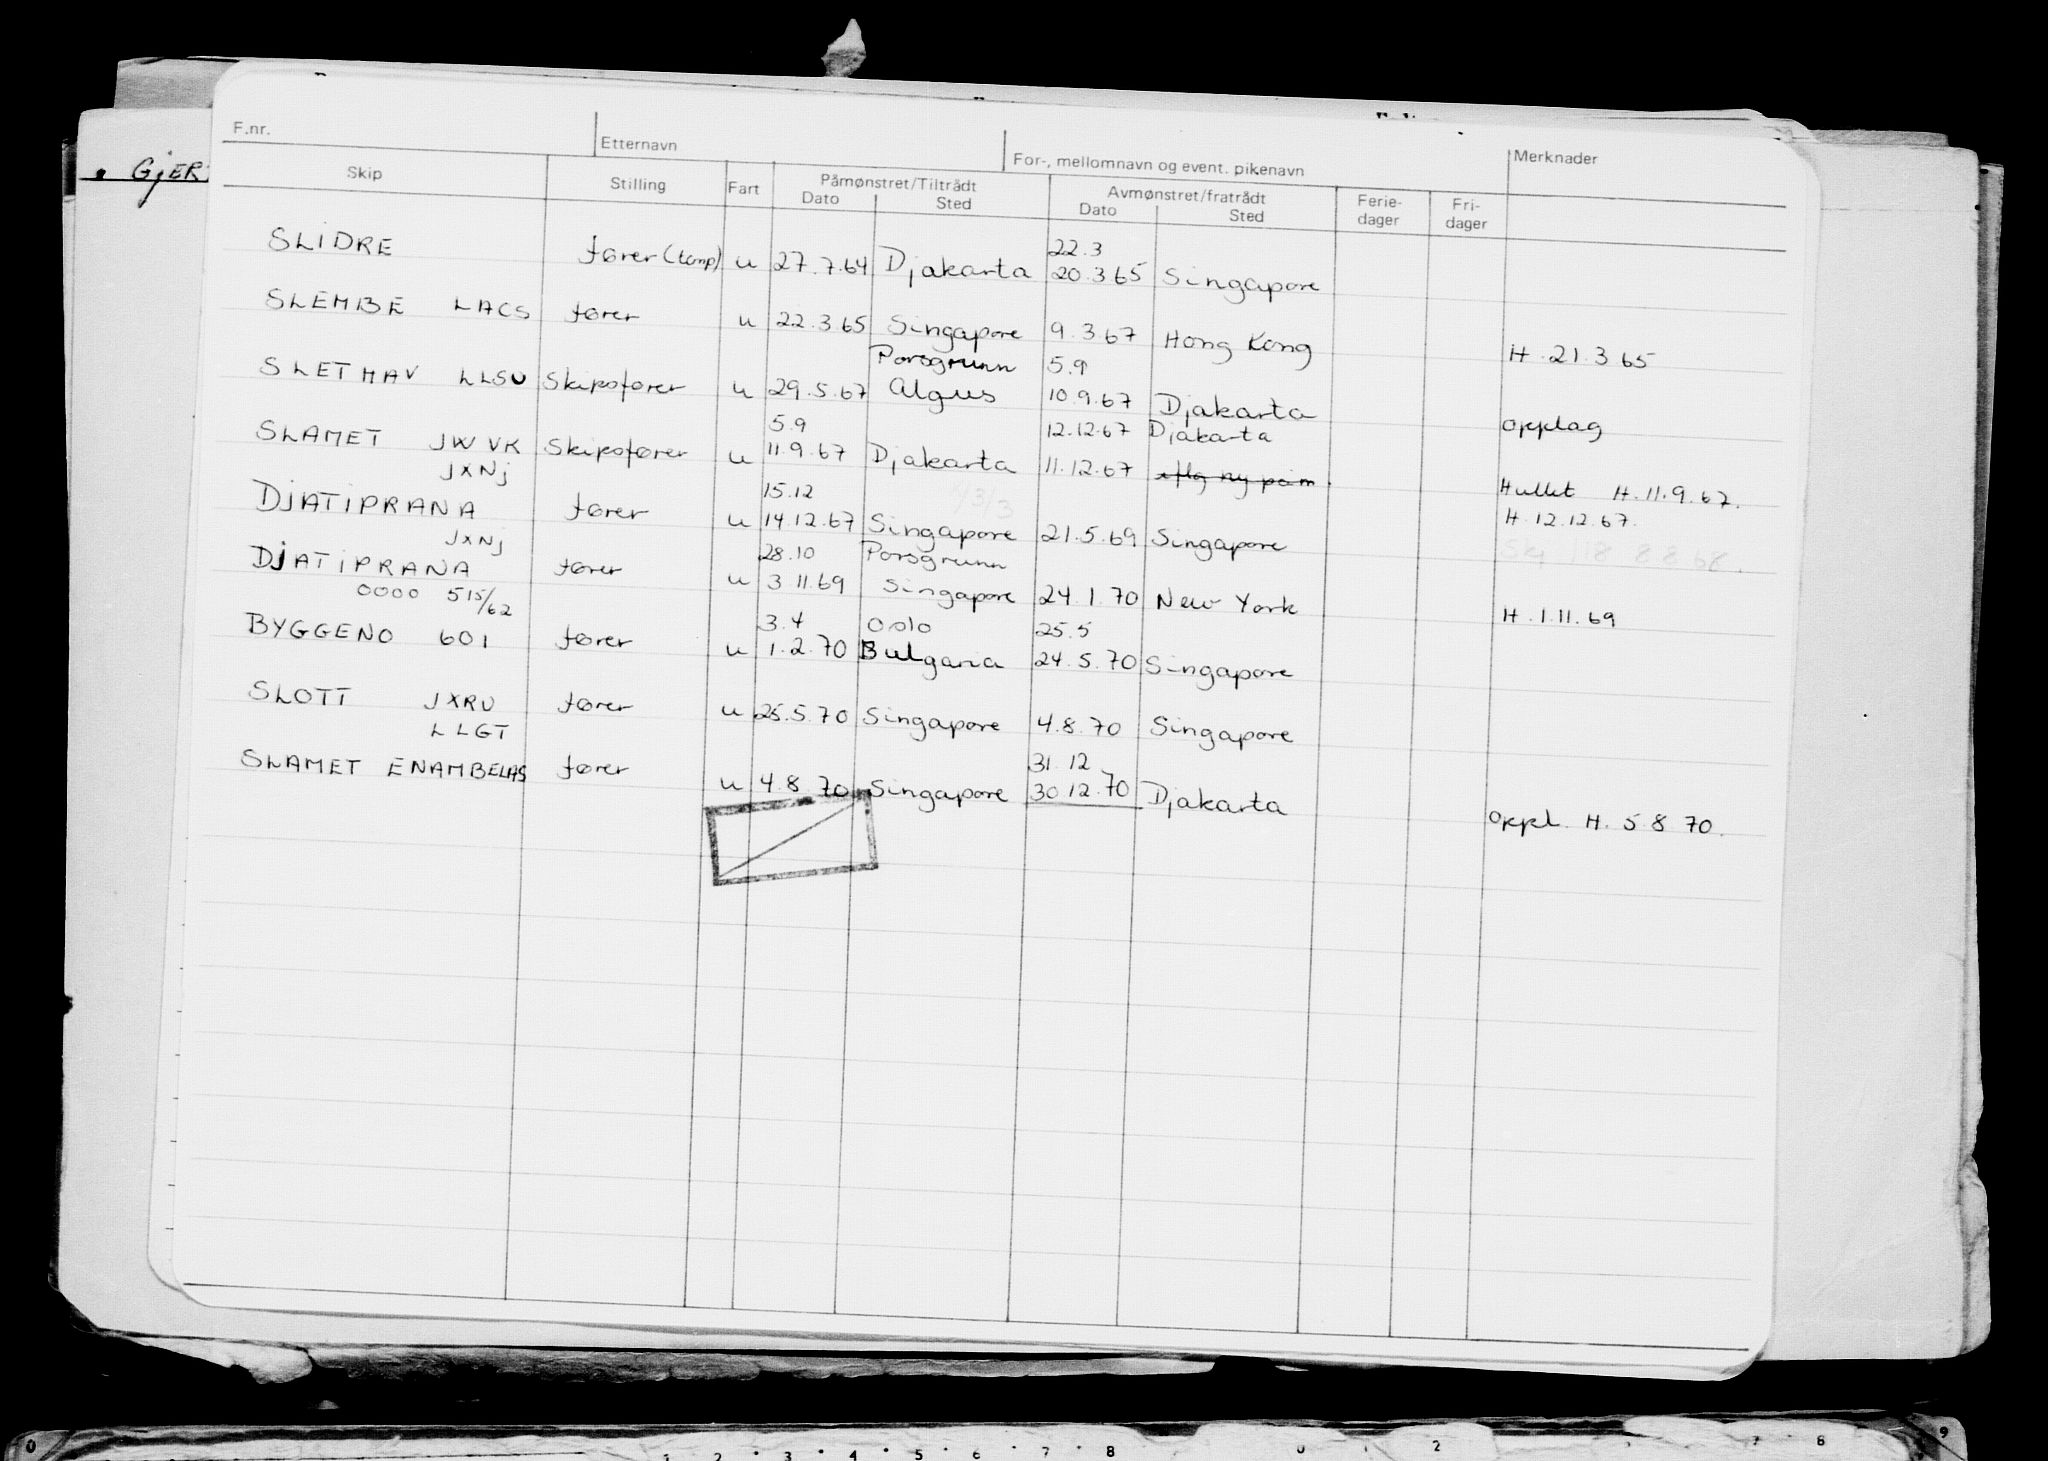 F.nr. Etternavn For-, mellomnavn og event. pikenavn Merknader
GJER
Skip Stilling Fart Påmønstret/Tiltrådt Avmønstret/fratrådt Ferie- Fri-
Dato Sted Dato Sted dager dager
22.3
SLIDRE fører (temp) u 27.7.64 Djakarta 20.3 65 Singapore
SLEMBE LACS fører u 22.3.65 Singapore 9.3.67 Hong Kong H.21.3 65
Porsgrunn 5.9
SLETHAV LLSU Skipsfører u 29.5.67 10.9.67 Djakarta opplag
5.9 12.12.67 Djakarta
SLAMET JWVK Skipsfører u 11.9.67 Djakarta 11.12.67 Hullet H.11.9.67.
JXNJ 15.12 H.12.12.67.
DJATIPRANA fører u 14.12.67 Singapore 21.5.69 Singapore
JXNJ 28.10 Porsgrunn
DJATIPRANA fører u 3 11.69 Singapore 24.1.70 New York H.1.11.69
0000 515/62 3.4 Oslo 25.5
BYGGENO 601 fører u 1.2.70 Bulgaria 24.5.70 Singapore
SLOTT JXRU fører u 25.5.70 Singapore 4.8.70 Singapore
LLGT 31.12
SLAMET ENAMBELAS fører u 4.8.70 Singapore 30.12.70 Djakarta oppl. H. 5.8 70.
0 1 2 3 4 5 6 7 8 0 1 2 7 8 9